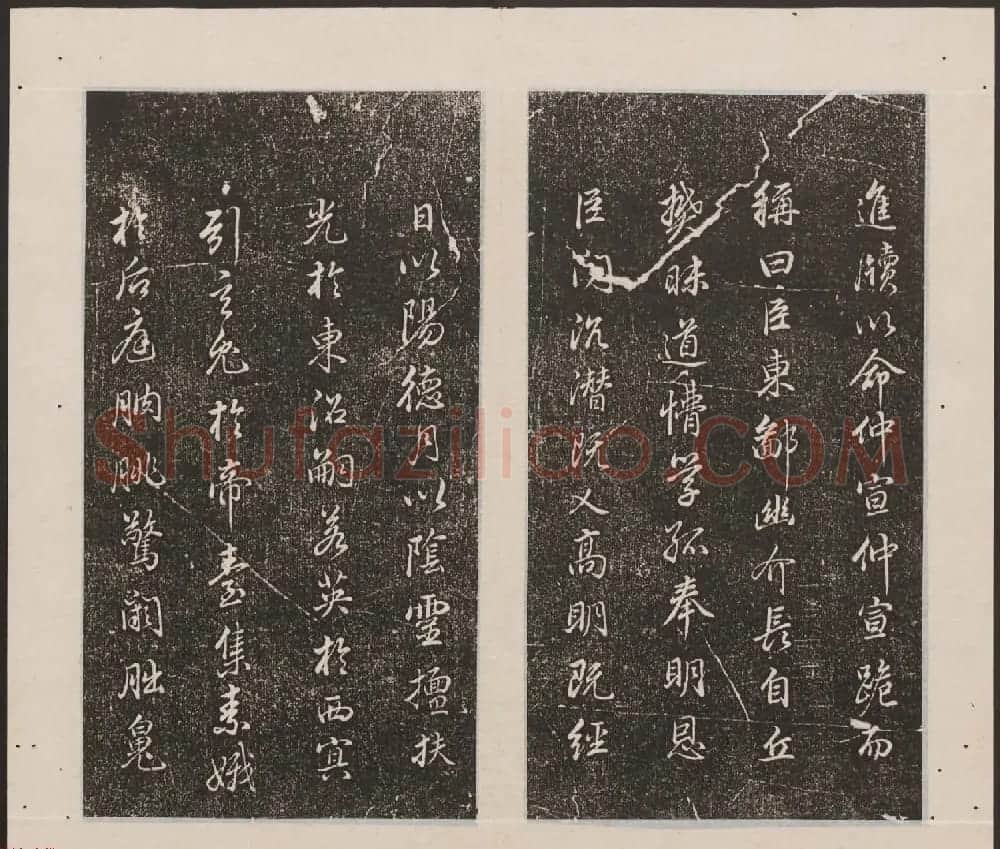 進牘以命仲宣仲宣跪而
稱曰臣東鄙幽介長自丘
樊昧道懵學孤奉明恩
臣聞沉潛既乂高明既經
日以陽德月以陰靈擅扶
光於東沼嗣若英於西冥
引玄兔於帝臺集素娥
於后庭朒朓驚闕朏魄
Shufaziliao.COM